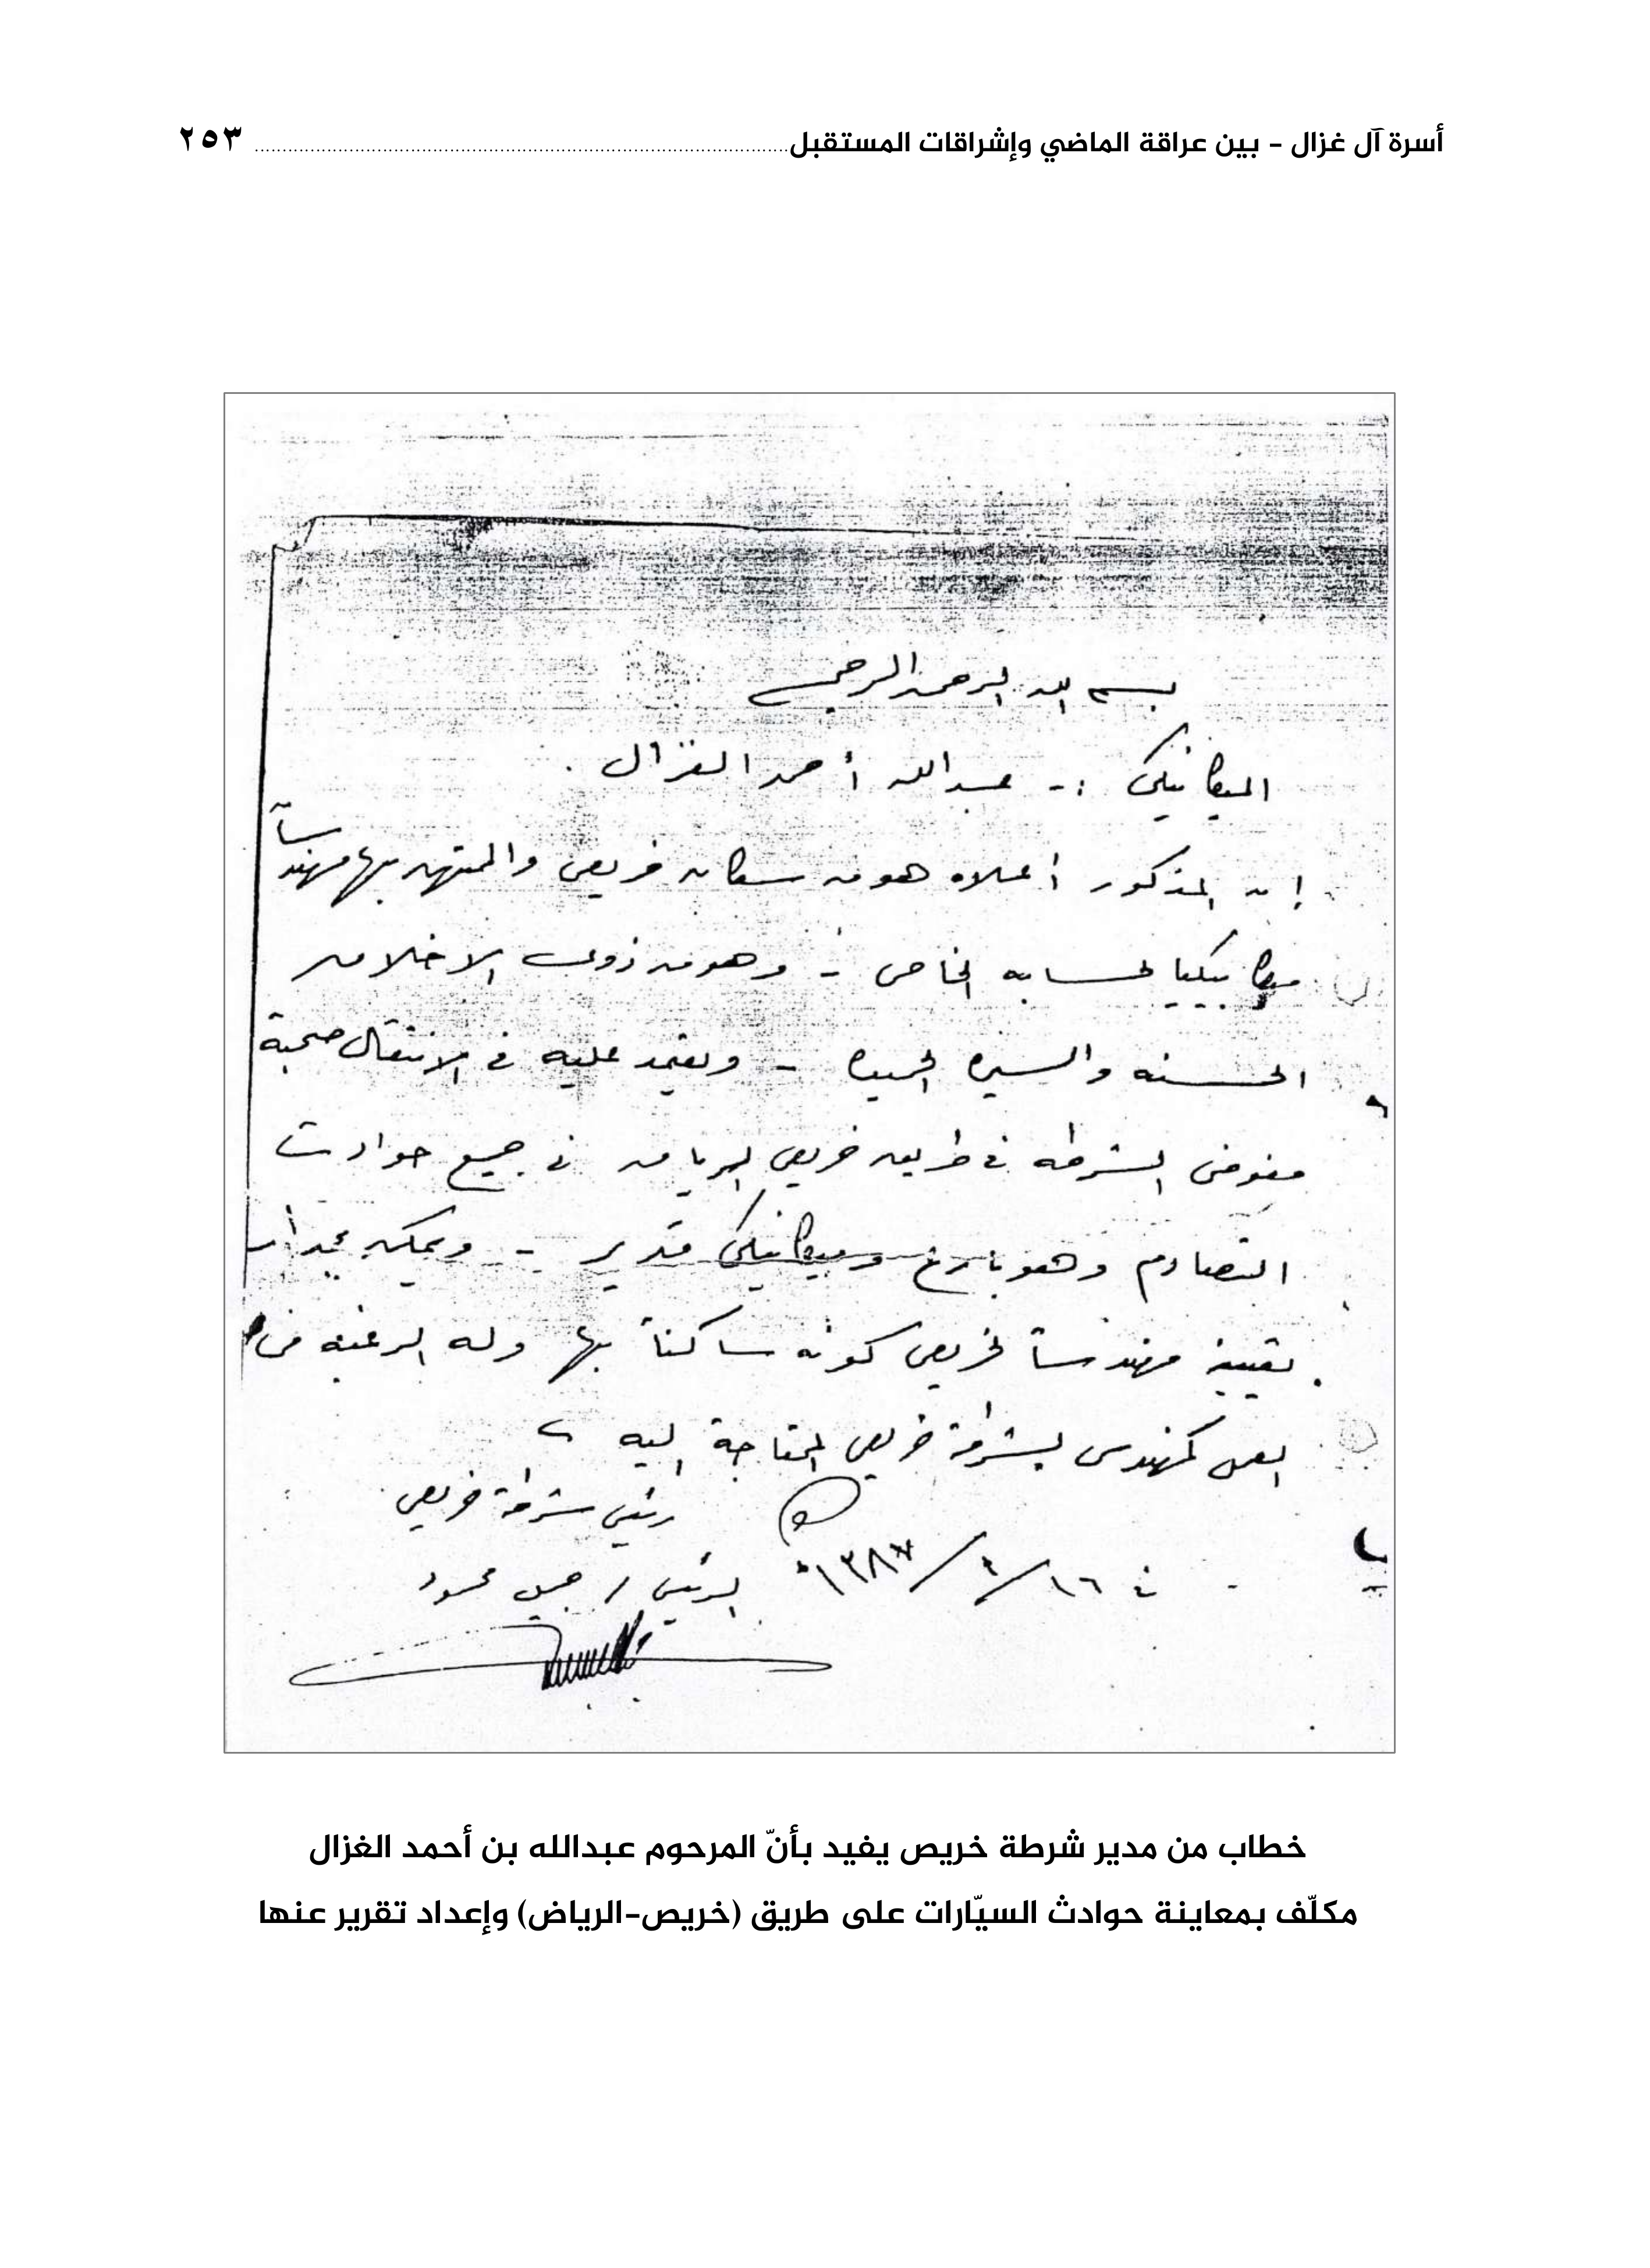 أسرة آل غزال - بين عراقة الماضي وإشراقات المستقبل ٢٥٣
بسم الله الرحمن الرحيم
الميكانيكي :- عبدالله أحمد الغزال .
إن المذكور أعلاه هو من سكان خريص والممتهن بها مهندساً
ميكانيكيا لحسابه الخاص - وهو من ذوي الاخلاق
الحسنه والسيره الحميده - ويعتمد عليه في الانتقال صحبة
مفوض الشرطه في طريق خريص الرياض في جميع حوادث
التصادم وهو بارع وميكانيكي قدير - ويمكن
تعيينه مهندساً لخريص كونه ساكناً بها وله الرغبه في
العمل كمهندس بشرطة خريص المحتاجة اليه
رئيس شرطة خريص
في ١٦/٤/١٣٨٧ه الرئيس / جميل محمود
خطاب من مدير شرطة خريص يفيد بأنّ المرحوم عبدالله بن أحمد الغزال
مكلّف بمعاينة حوادث السيّارات على طريق (خريص-الرياض) وإعداد تقرير عنها